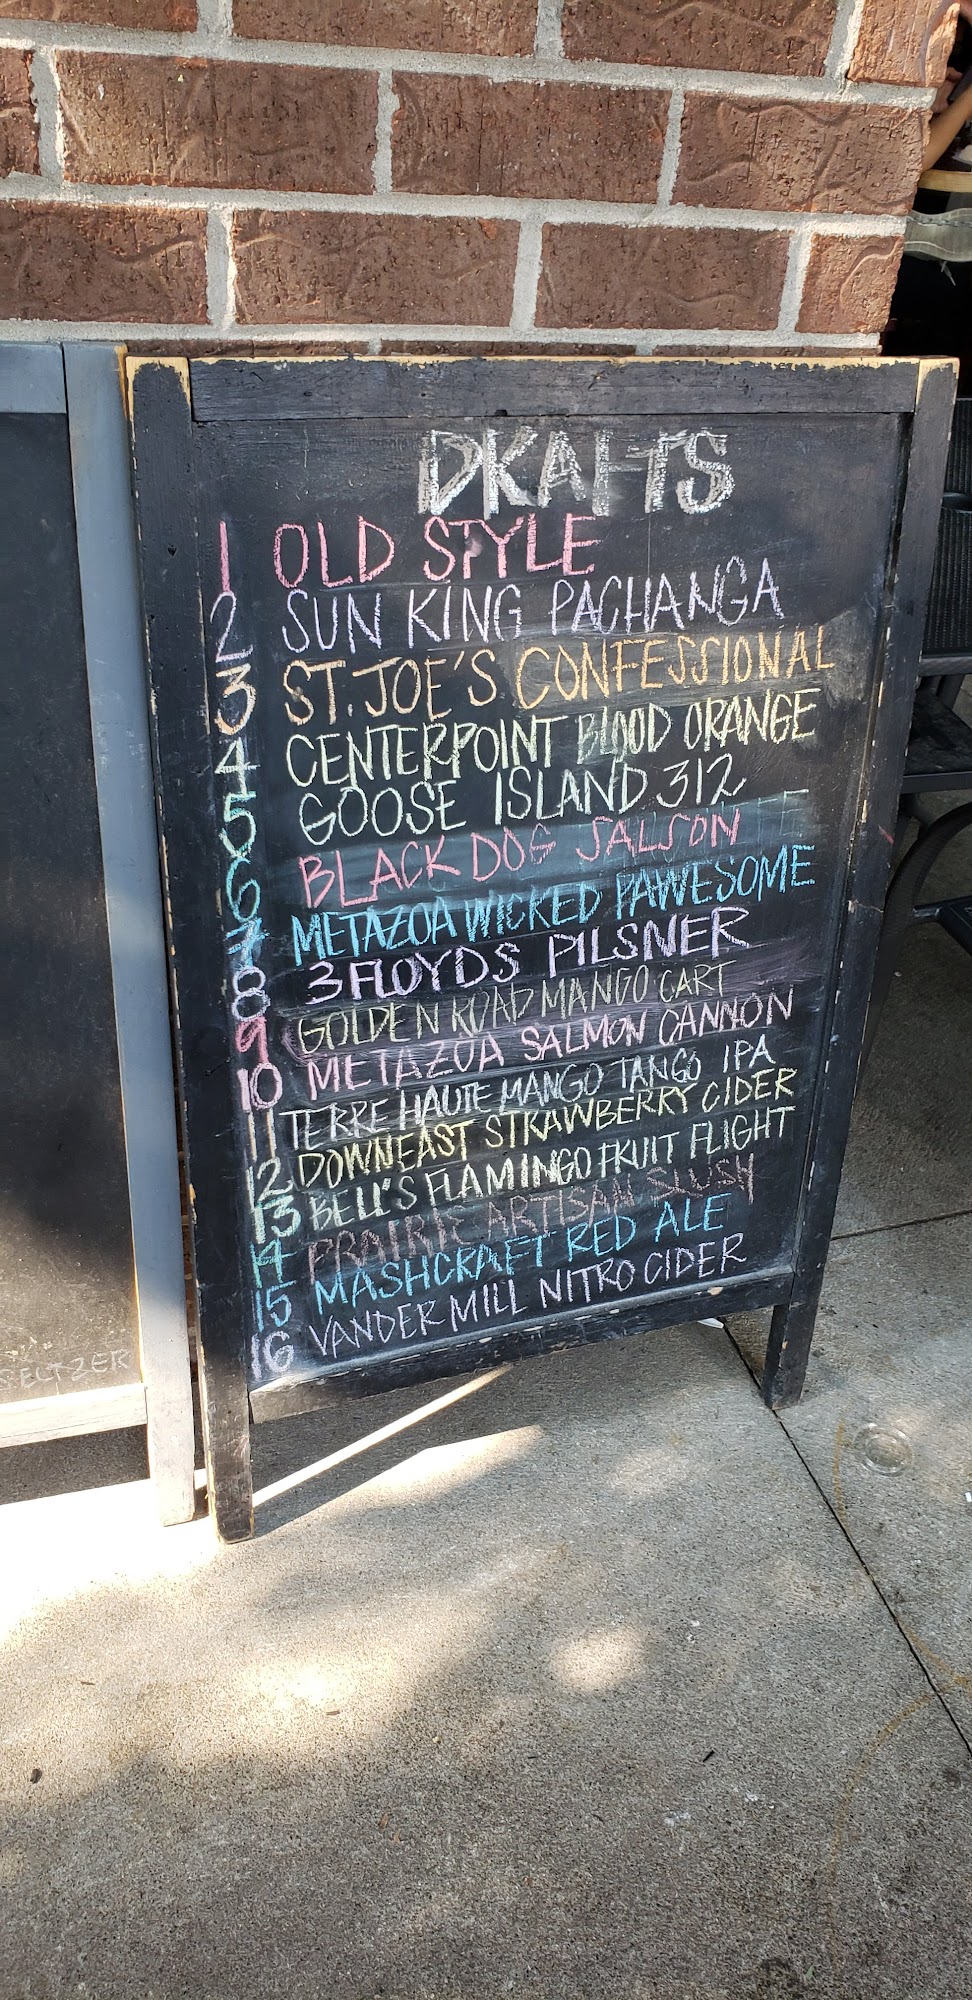 DRAFTS
1 OLD STYLE
2 SUN KING PACHANGA
3 ST. JOE'S CONFESSIONAL
4 CENTERPOINT BLOOD ORANGE
5 GOOSE ISLAND 312
6 BLACK DOG SAISON
7 METAZOA WICKED PAWESOME
8 3 FLOYDS PILSNER
9 GOLDEN ROAD MANGO CART
10 METAZOA SALMON CANNON
11 TERRE HAUTE MANGO TANGO IPA
12 DOWNEAST STRAWBERRY CIDER
13 BELL'S FLAMINGO FRUIT FLIGHT
14 PRAIRIE ARTISAN SLUSH
15 MASHCRAFT RED ALE
16 VANDER MILL NITRO CIDER
SELTZER